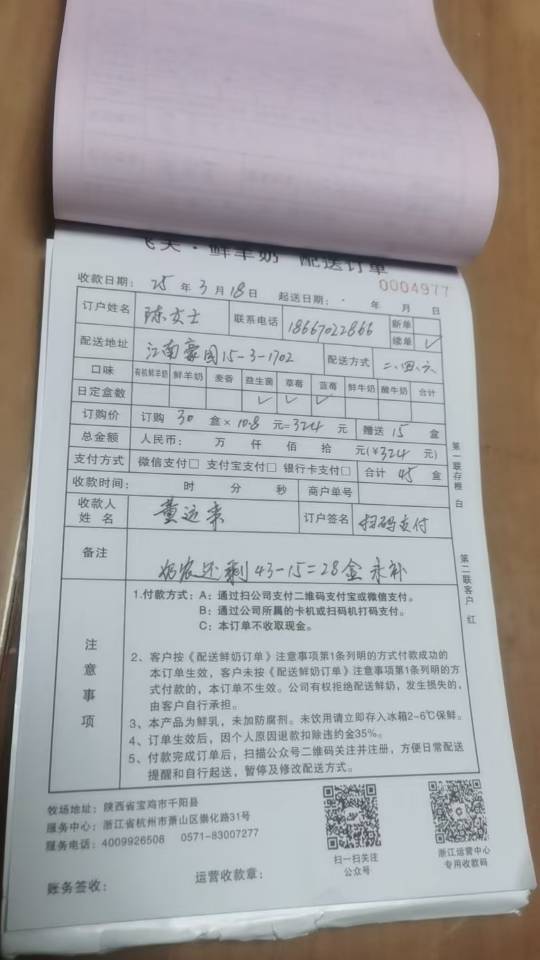 飞天·鲜羊奶 配送订单
0004977
收款日期： 25 年 3 月 18 日 起送日期： 年 月 日
订户姓名 陈女士 联系电话 18667022866 新单
续单 ✓
配送地址 江南豪园15-3-1702 配送方式 二.四.六
口味 有机鲜羊奶 鲜羊奶 麦香 益生菌 草莓 蓝莓 鲜牛奶 酸牛奶 合计
日定盒数 ✓ ✓ ✓
订购价 订购 30 盒× 10.8 元=324 元 赠送 15 盒
总金额 人民币： 万 仟 佰 拾 元(¥324 元)
支付方式 微信支付□ 支付宝支付□ 银行卡支付□ 合计 45 盒
收款时间： 时 分 秒 商户单号
收款人姓名 董运来 订户签名 扫码支付
备注 还剩 43-15=28盒
注意事项
1.付款方式：A：通过扫公司支付二维码支付宝或微信支付。
B：通过公司所属的卡机或扫码机打码支付。
C：本订单不收取现金。
2、客户按《配送鲜奶订单》注意事项第1条列明的方式付款成功的
本订单生效，客户未按《配送鲜奶订单》注意事项第1条列明的方
式付款的，本订单不生效。公司有权拒绝配送鲜奶，发生损失的，
由客户自行承担。
3、本产品为鲜乳，未加防腐剂。未饮用请立即存入冰箱2-6℃保鲜。
4、订单生效后，因个人原因退款扣除违约金35%。
5、付款完成订单后，扫描公众号二维码关注并注册，方便日常配送
提醒和自行起送，暂停及修改配送方式。
第一联存根 白
第二联客户 红
牧场地址：陕西省宝鸡市千阳县
服务中心：浙江省杭州市萧山区崇化路31号
服务电话：4009926508 0571-83007277
扫一扫关注
公众号
浙江运营中心
专用收款码
账务签收： 运营收款章：